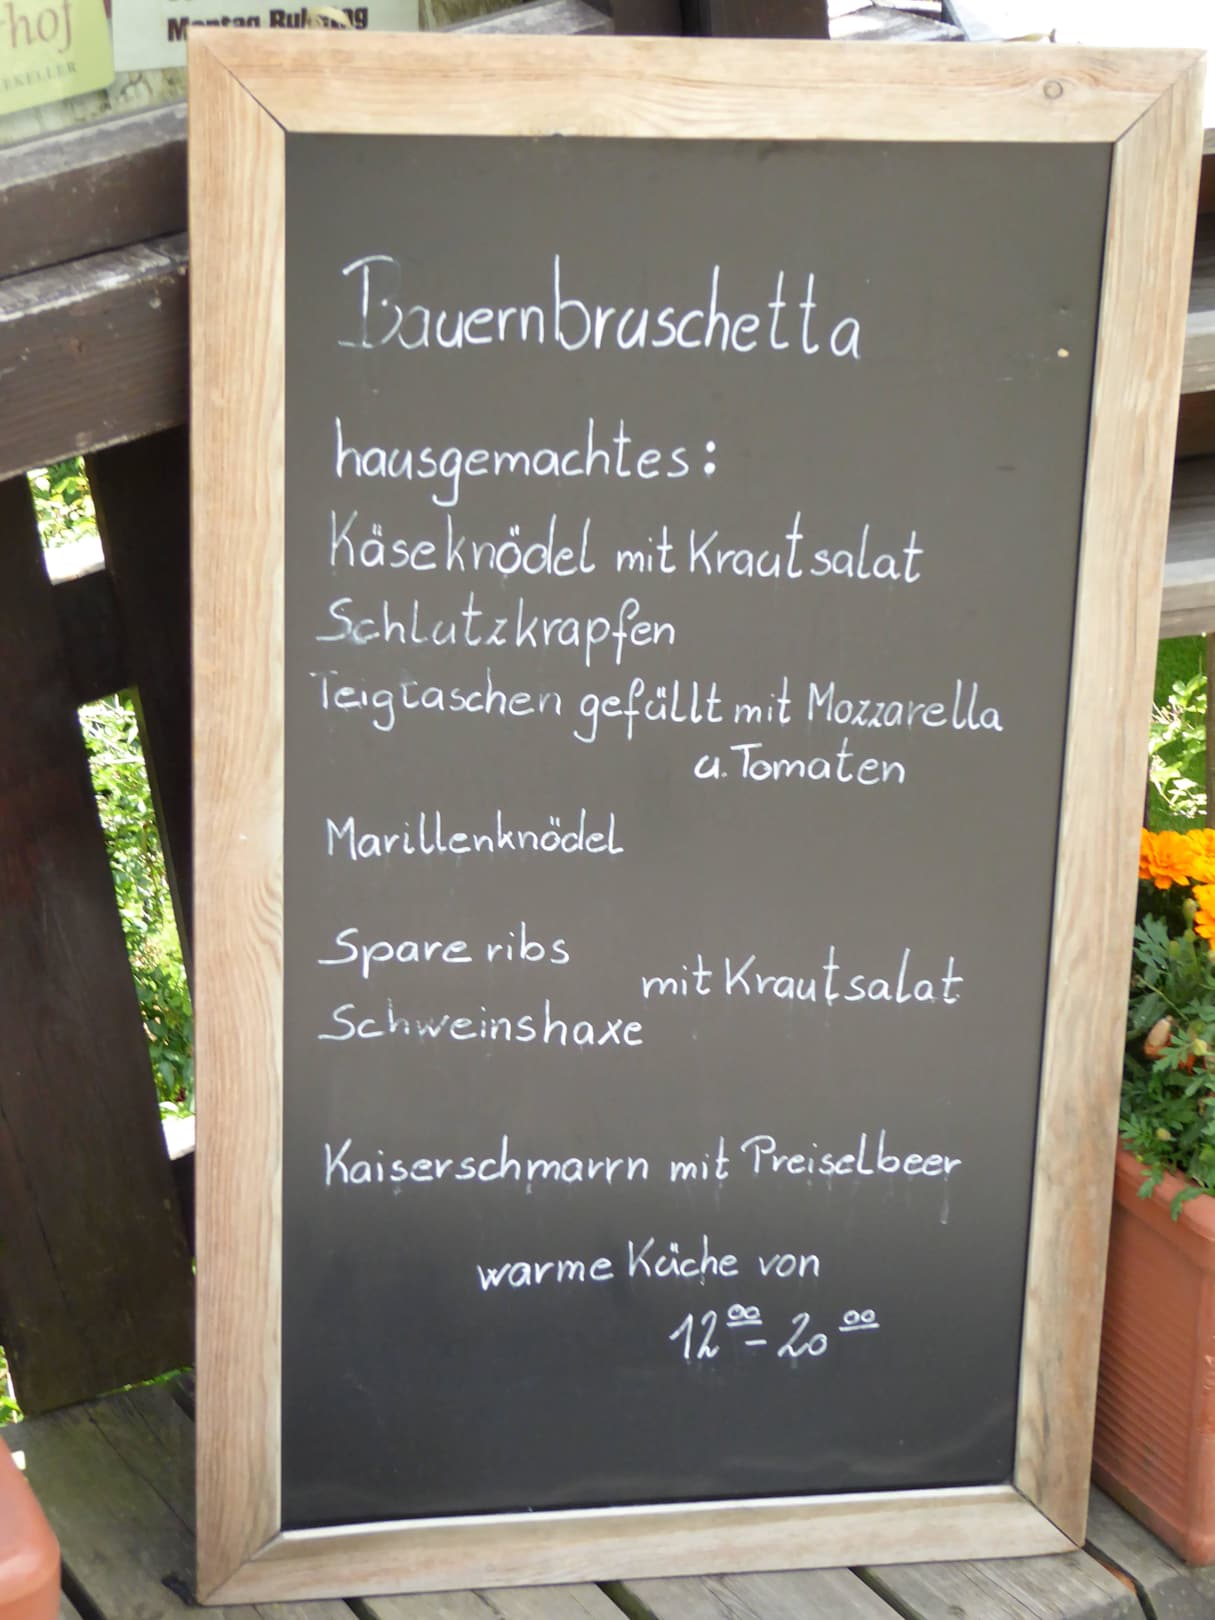 hof
EKELLER
Montag Ruhetag
Bauernbruschetta
hausgemachtes:
Käseknödel mit Krautsalat
Schlutzkrapfen
Teigtaschen gefüllt mit Mozzarella
u. Tomaten
Marillenknödel
Spare ribs
mit Krautsalat
Schweinshaxe
Kaiserschmarrn mit Preiselbeer
warme Küche von
12⁰⁰ - 20⁰⁰